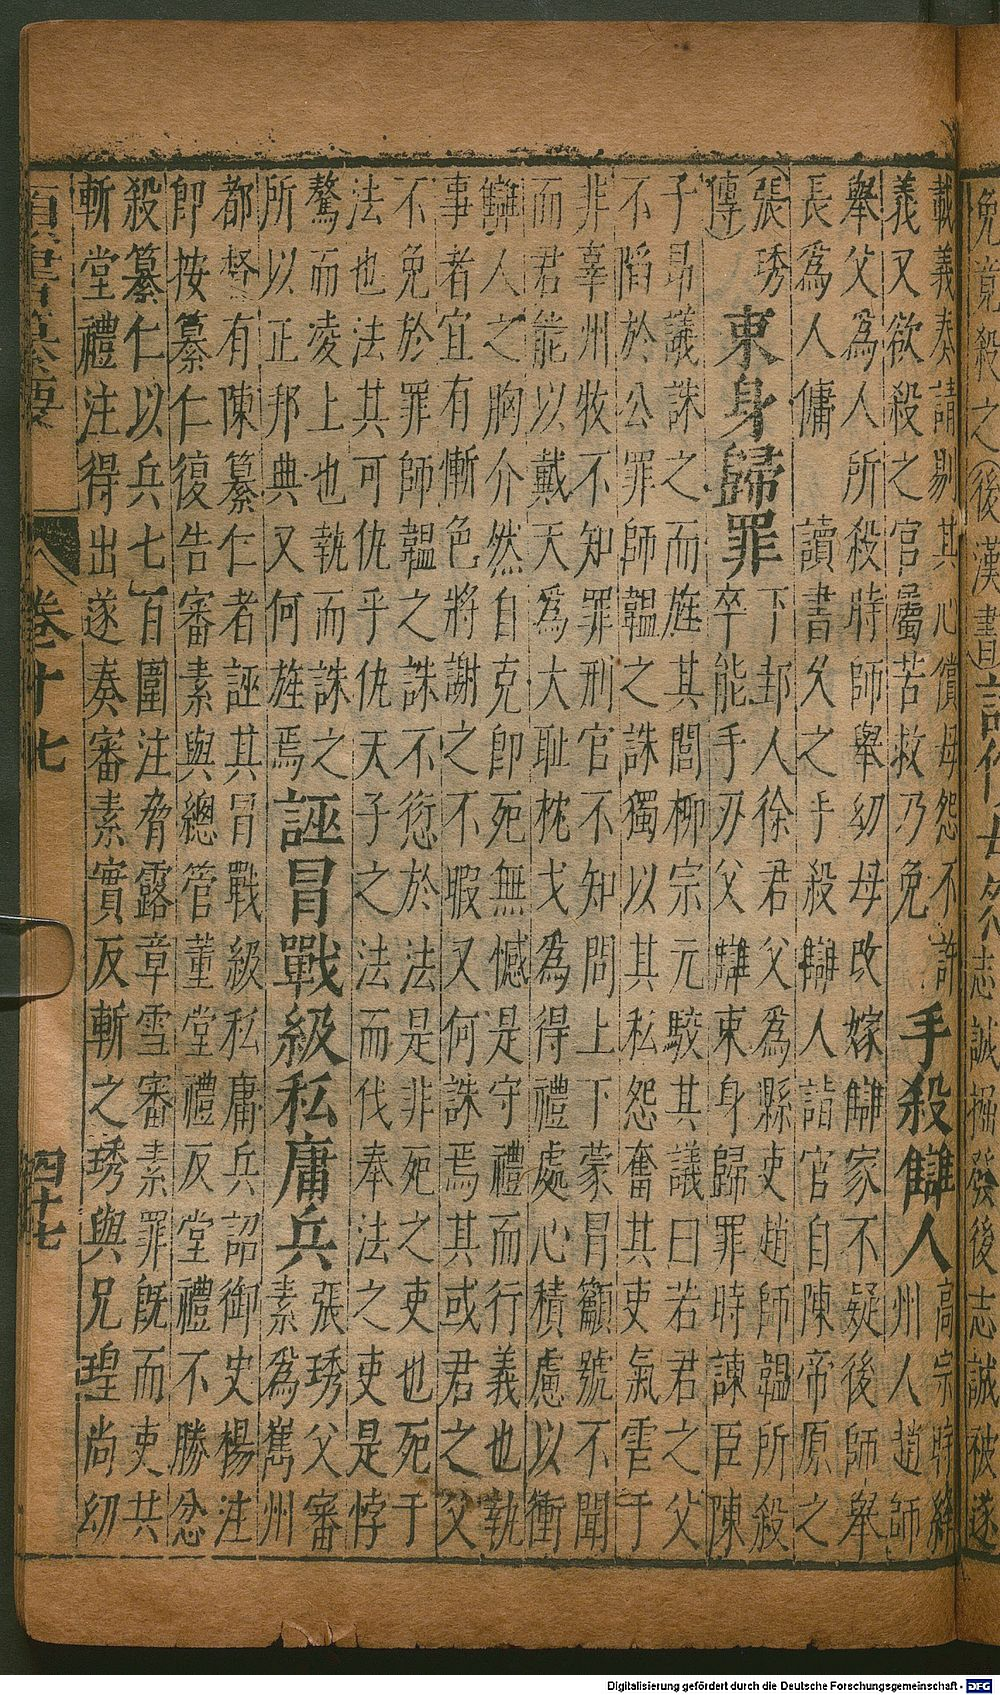 殺之(後漢書)
載義奏請剔其心償母怨不許
義又欲殺之官屬苦救乃免
手殺讎人
高宗時絳
州人趙師
舉父為人所殺時師舉幼母改嫁讎家不疑後師舉
長為人傭 讀書久之手殺讎人詣官自陳帝原之
(張琇
傳)
束身歸罪
下邽人徐君父為縣吏趙師韞所殺
卒能手刃父讎束身歸罪時諫臣陳
子昂議誅之而旌其閭柳宗元駮其議曰若君之父
不陷於公罪師韞之誅獨以其私怨奮其吏氣虐于
非辜州牧不知罪刑官不知問上下蒙冒籲號不聞
而君能以戴天為大恥枕戈為得禮處心積慮以衝
讎人之胸介然自克即死無憾是守禮而行義也執
事者宜有慚色將謝之不暇又何誅焉其或君之父
不免於罪師韞之誅不愆於法是非死之吏也死于
法也法其可仇乎仇天子之法而伐奉法之吏是悖
驁而凌上也執而誅之
所以正邦典又何旌焉
誣冒戰級私庸兵
張琇父審
素為雋州
都督有陳纂仁者誣其冒戰級私庸兵詔御史楊汪
即按纂仁復告審素與總管董堂禮反堂禮不勝忿
殺纂仁以兵七百圍汪脅露章雪審素罪既而吏共
斬堂禮汪得出遂奏審素實反斬之琇與兄瑝尚幼
類書纂要 卷十七 四十七
Digitalisierung gefördert durch die Deutsche Forschungsgemeinschaft - DFG